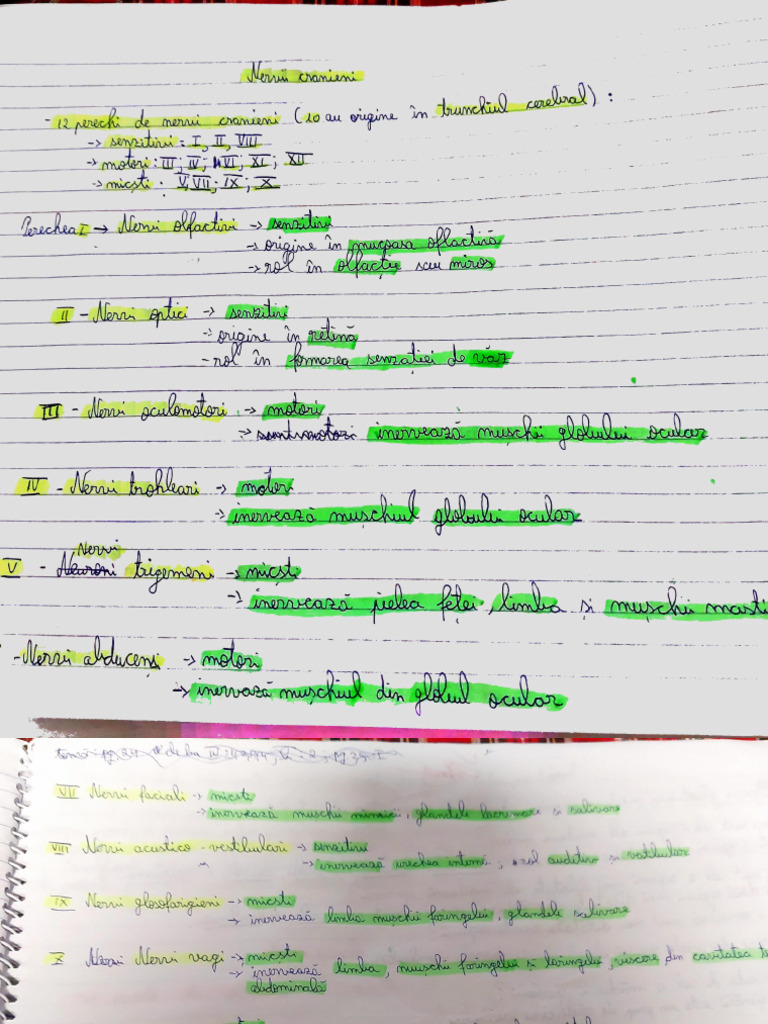 Nervii cranieni
- 12 perechi de nervi cranieni (10 au origine în trunchiul cerebral) :
-> senzitivi : I, II, VIII
-> motori : III ; IV ; VI ; XI ; XII
-> micști : V, VII ; IX ; X
Perechea I -> Nervii olfactivi -> senzitivi
-> origine în mucoasa olfactivă
-> rol în olfacție sau miros
II - Nervii optici -> senzitivi
-> origine în retină
- rol în formarea senzației de văz
III - Nervii oculomotori -> motori
-> sunt motori inervează mușchii globului ocular
IV - Nervii trohleari -> motori
-> inervează mușchiul globului ocular
Nervii
V - Neuroni trigemeni -> micști
-> inervează pielea feței, limba și mușchii masti
- Nervii abducenși -> motori
-> inervază mușchiul din globul ocular
VII Nervii faciali -> micști
-> inervează mușchii mimicii, glandele lacrimare și salivare
VIII Nervii acustico-vestibulari -> senzitivi
-> inervează urechea internă, rol auditiv și vestibular
IX Nervii glosofaringieni -> micști
-> inervează limba mușchii faringelui, glandele salivare
X Nervii vagi -> micști
-> inervează limba, mușchii faringelui și laringelui, viscere din cavitatea t
abdominală